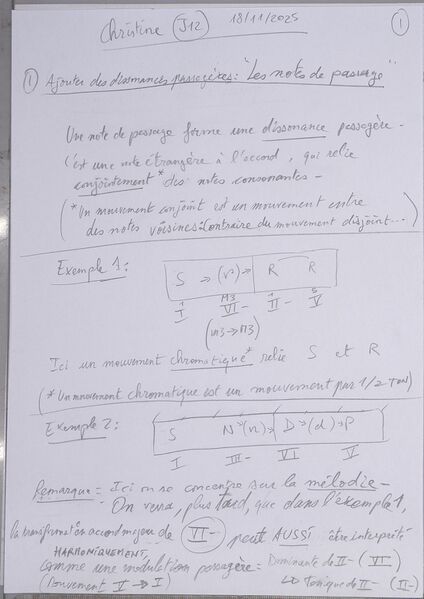 Christine (J12) 18/11/2025 (1)
(1) Ajouter des dissonances passagères: "Les notes de passage"
Une note de passage forme une dissonance passagère -
C'est une note étrangère à l'accord, qui relie
conjointement* des notes consonantes -
(*Un mouvement conjoint est un mouvement entre
des notes voisines: Contraire du mouvement disjoint...)
Exemple 1:
S → (r) → R R
1 M3 1 5
I VI- II- V
(m3→M3)
Ici un mouvement chromatique* relie S et R
(*Un mouvement chromatique est un mouvement par 1/2 TON)
Exemple 2:
S N→(n)→ D→(d)→P
I III- VI V
Remarque = Ici on se concentre sur la mélodie -
On verra, plus tard, que dans l'exemple 1,
la transformation accord majeur de (VI-) peut AUSSI être interprété
HARMONIQUEMENT,
comme une modulation passagère: Dominante de II- (VI)
(Mouvement V → I) ↳ Tonique de II- (II-)